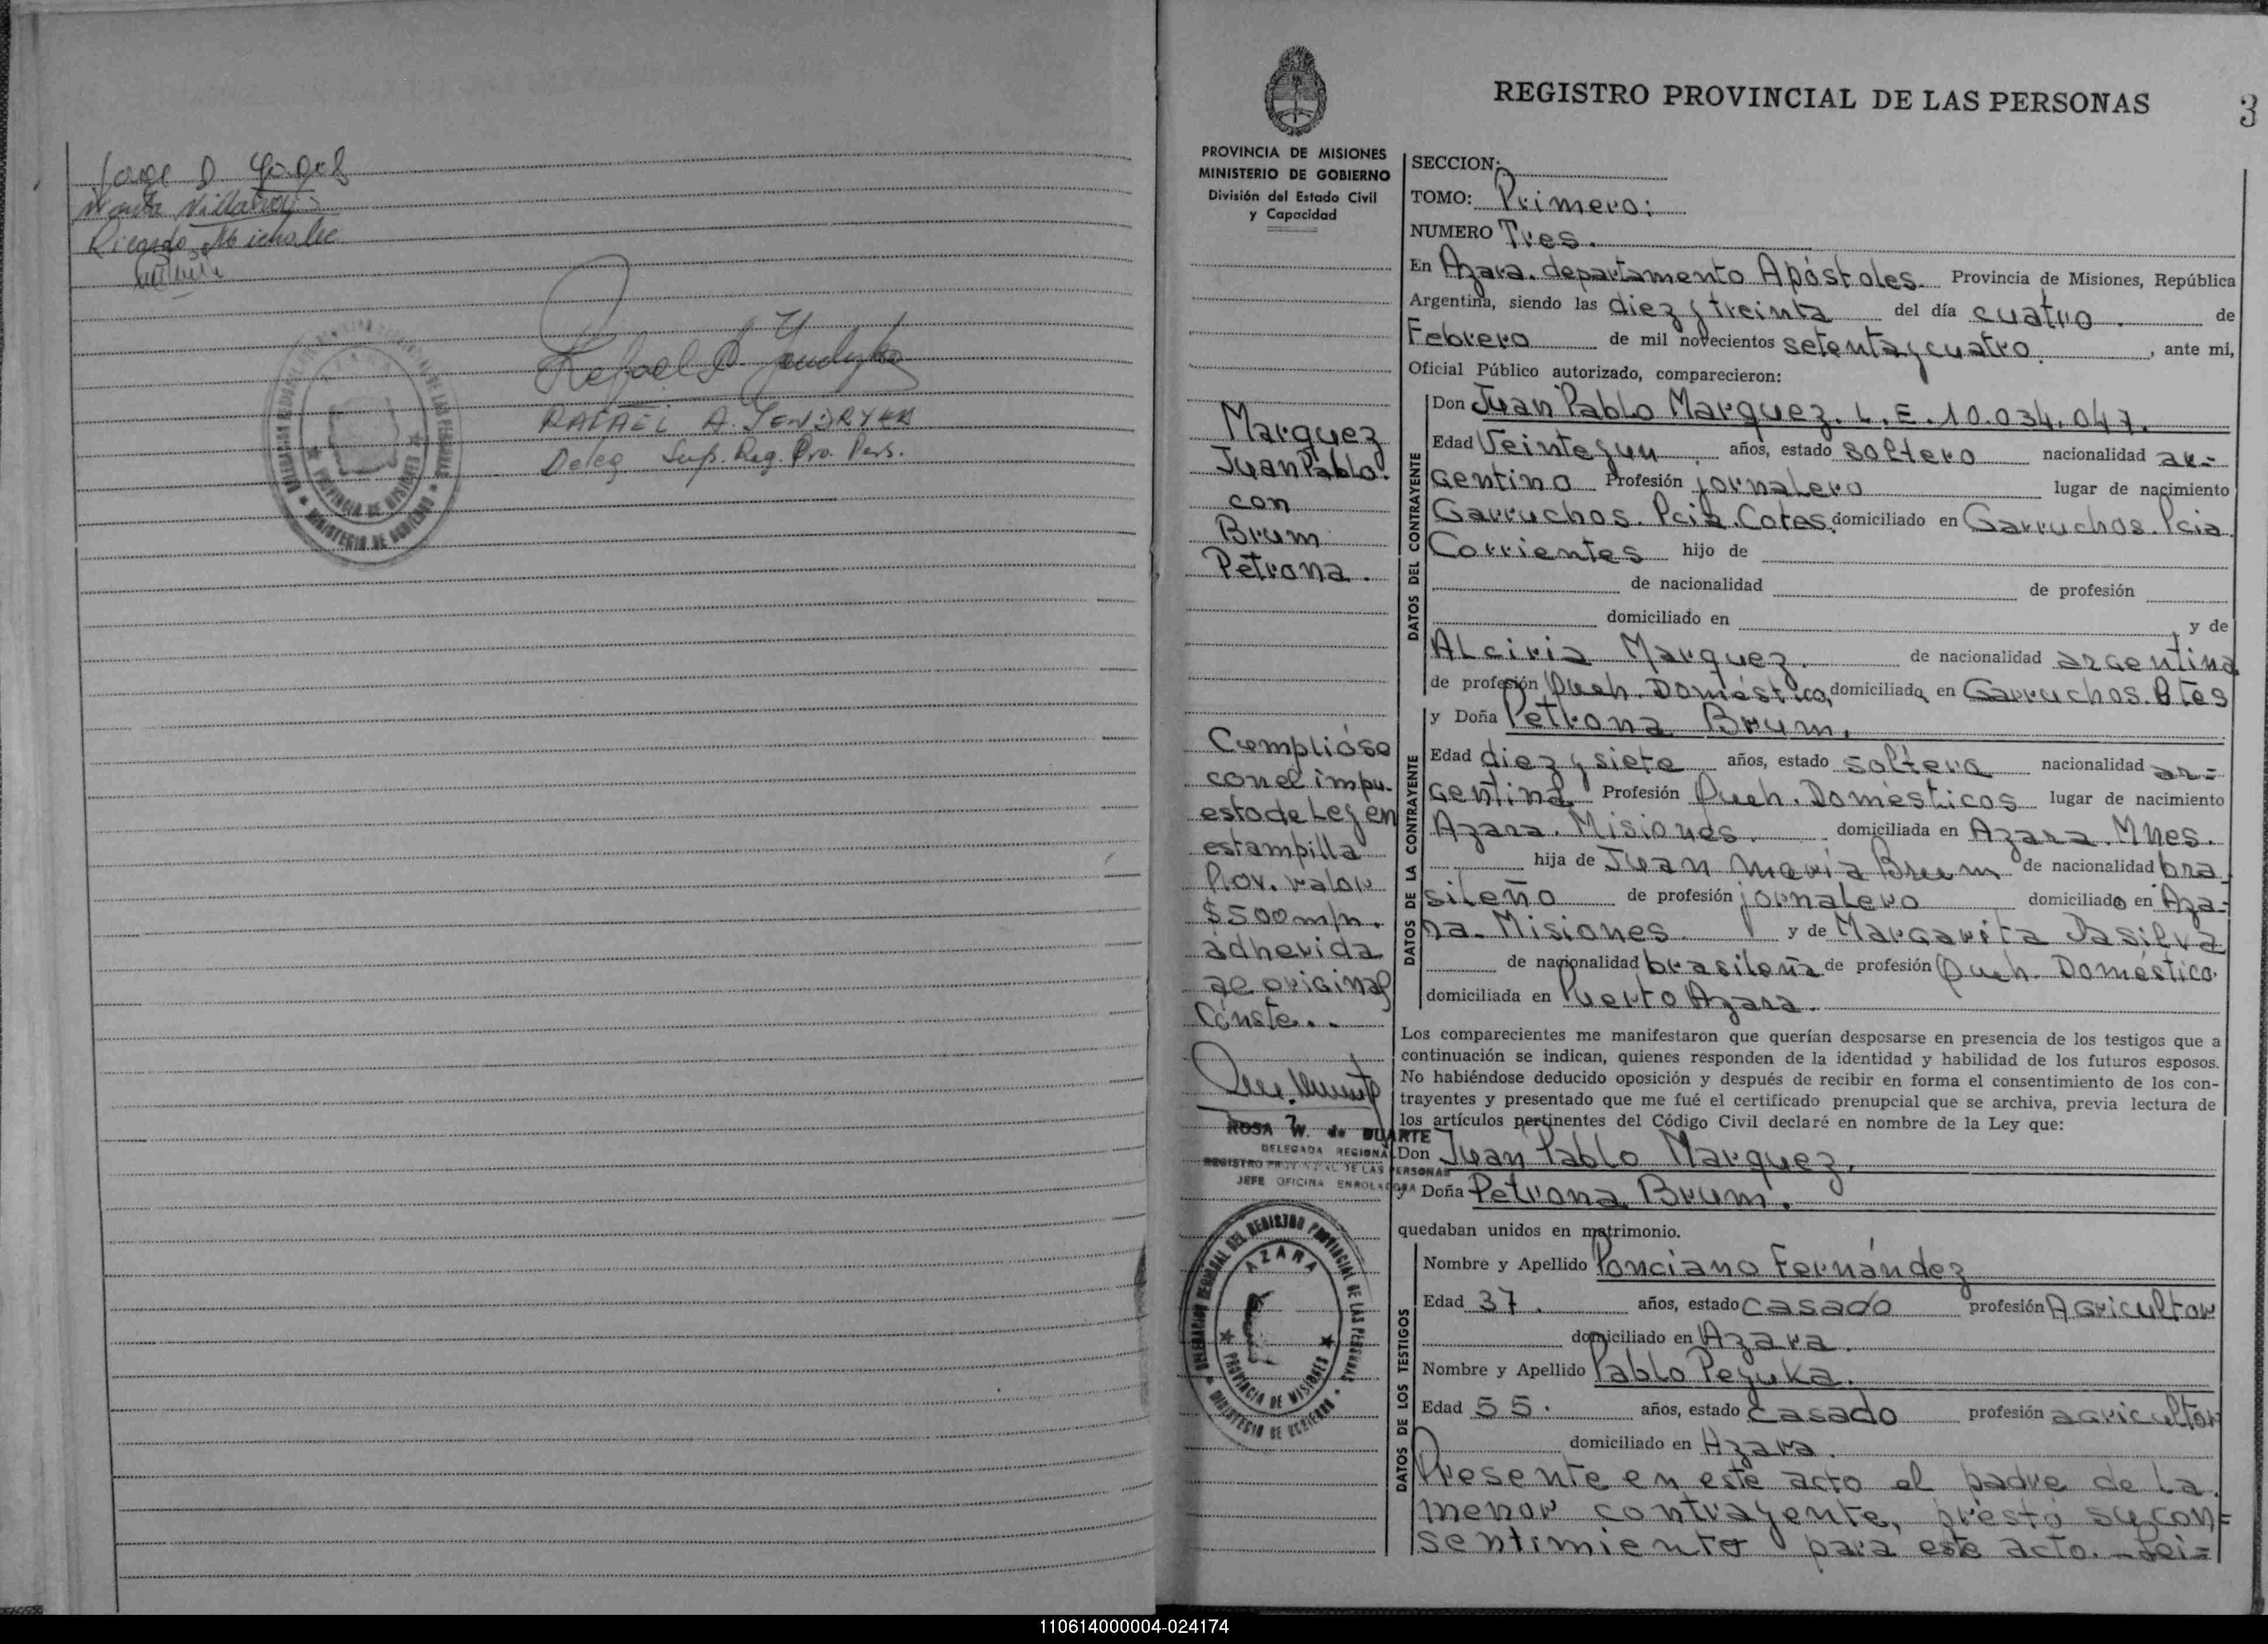 Jorge D.
Ricardo Michalec
RAFAEL A. JENDRYKA
Deleg Sup. Reg. Pro. Pers.
REGISTRO PROVINCIAL DE LAS PERSONAS
3
PROVINCIA DE MISIONES
MINISTERIO DE GOBIERNO
División del Estado Civil
y Capacidad
Marquez
Juan Pablo.
con
Brum
Petrona.
Cumplióse
con el impu-
esto de Ley en
estampilla
Prov. valor
$500 m/n.
adherida
al original
Conste..
ROSA W. de DUARTE
DELEGADA REGIONAL
REGISTRO PROVINCIAL DE LAS PERSONAS
JEFE OFICINA ENROLADORA
DELEGACION REGIONAL DEL REGISTRO PROVINCIAL DE LAS PERSONAS
AZARA
PROVINCIA DE MISIONES
MINISTERIO DE GOBIERNO
SECCION:
TOMO: Primero:
NUMERO Tres.
En Azara. departamento Apóstoles. Provincia de Misiones, República
Argentina, siendo las diez y treinta del día cuatro. de
Febrero de mil novecientos setenta y cuatro. , ante mi,
Oficial Público autorizado, comparecieron:
DATOS DEL CONTRAYENTE
Don Juan Pablo Marquez. L.E. 10.034.047.
Edad Veinte y un años, estado soltero nacionalidad ar-
gentino Profesión jornalero lugar de nacimiento
Garruchos. Pcia. Cotes. domiciliado en Garruchos. Pcia
Corrientes hijo de
de nacionalidad de profesión
domiciliado en y de
Alciria Marquez. de nacionalidad argentina
de profesión Queh. Doméstico, domiciliada en Garruchos. Ctes
DATOS DE LA CONTRAYENTE
y Doña Petrona Brum.
Edad diez y siete años, estado soltera nacionalidad ar-
gentina Profesión Queh. Domésticos lugar de nacimiento
Azara. Misiones. domiciliada en Azara. Mnes.
hija de Juan María Brum de nacionalidad bra-
sileño de profesión jornalero domiciliado en Aza-
ra. Misiones y de Margarita Dasilva
de nacionalidad brasileña de profesión Queh. Doméstico.
domiciliada en Puerto Azara.
Los comparecientes me manifestaron que querían desposarse en presencia de los testigos que a
continuación se indican, quienes responden de la identidad y habilidad de los futuros esposos.
No habiéndose deducido oposición y después de recibir en forma el consentimiento de los con-
trayentes y presentado que me fué el certificado prenupcial que se archiva, previa lectura de
los artículos pertinentes del Código Civil declaré en nombre de la Ley que:
Don Juan Pablo Marquez.
y Doña Petrona Brum.
quedaban unidos en matrimonio.
DATOS DE LOS TESTIGOS
Nombre y Apellido Ponciano Fernandez
Edad 37. años, estado casado profesión Agricultor
domiciliado en Azara.
Nombre y Apellido Pablo Peyuka.
Edad 55. años, estado casado profesión agricultor
domiciliado en Azara.
Presente en este acto el padre de la
menor contrayente, prestó su con=
sentimiento para este acto.-Lei=
110614000004-024174